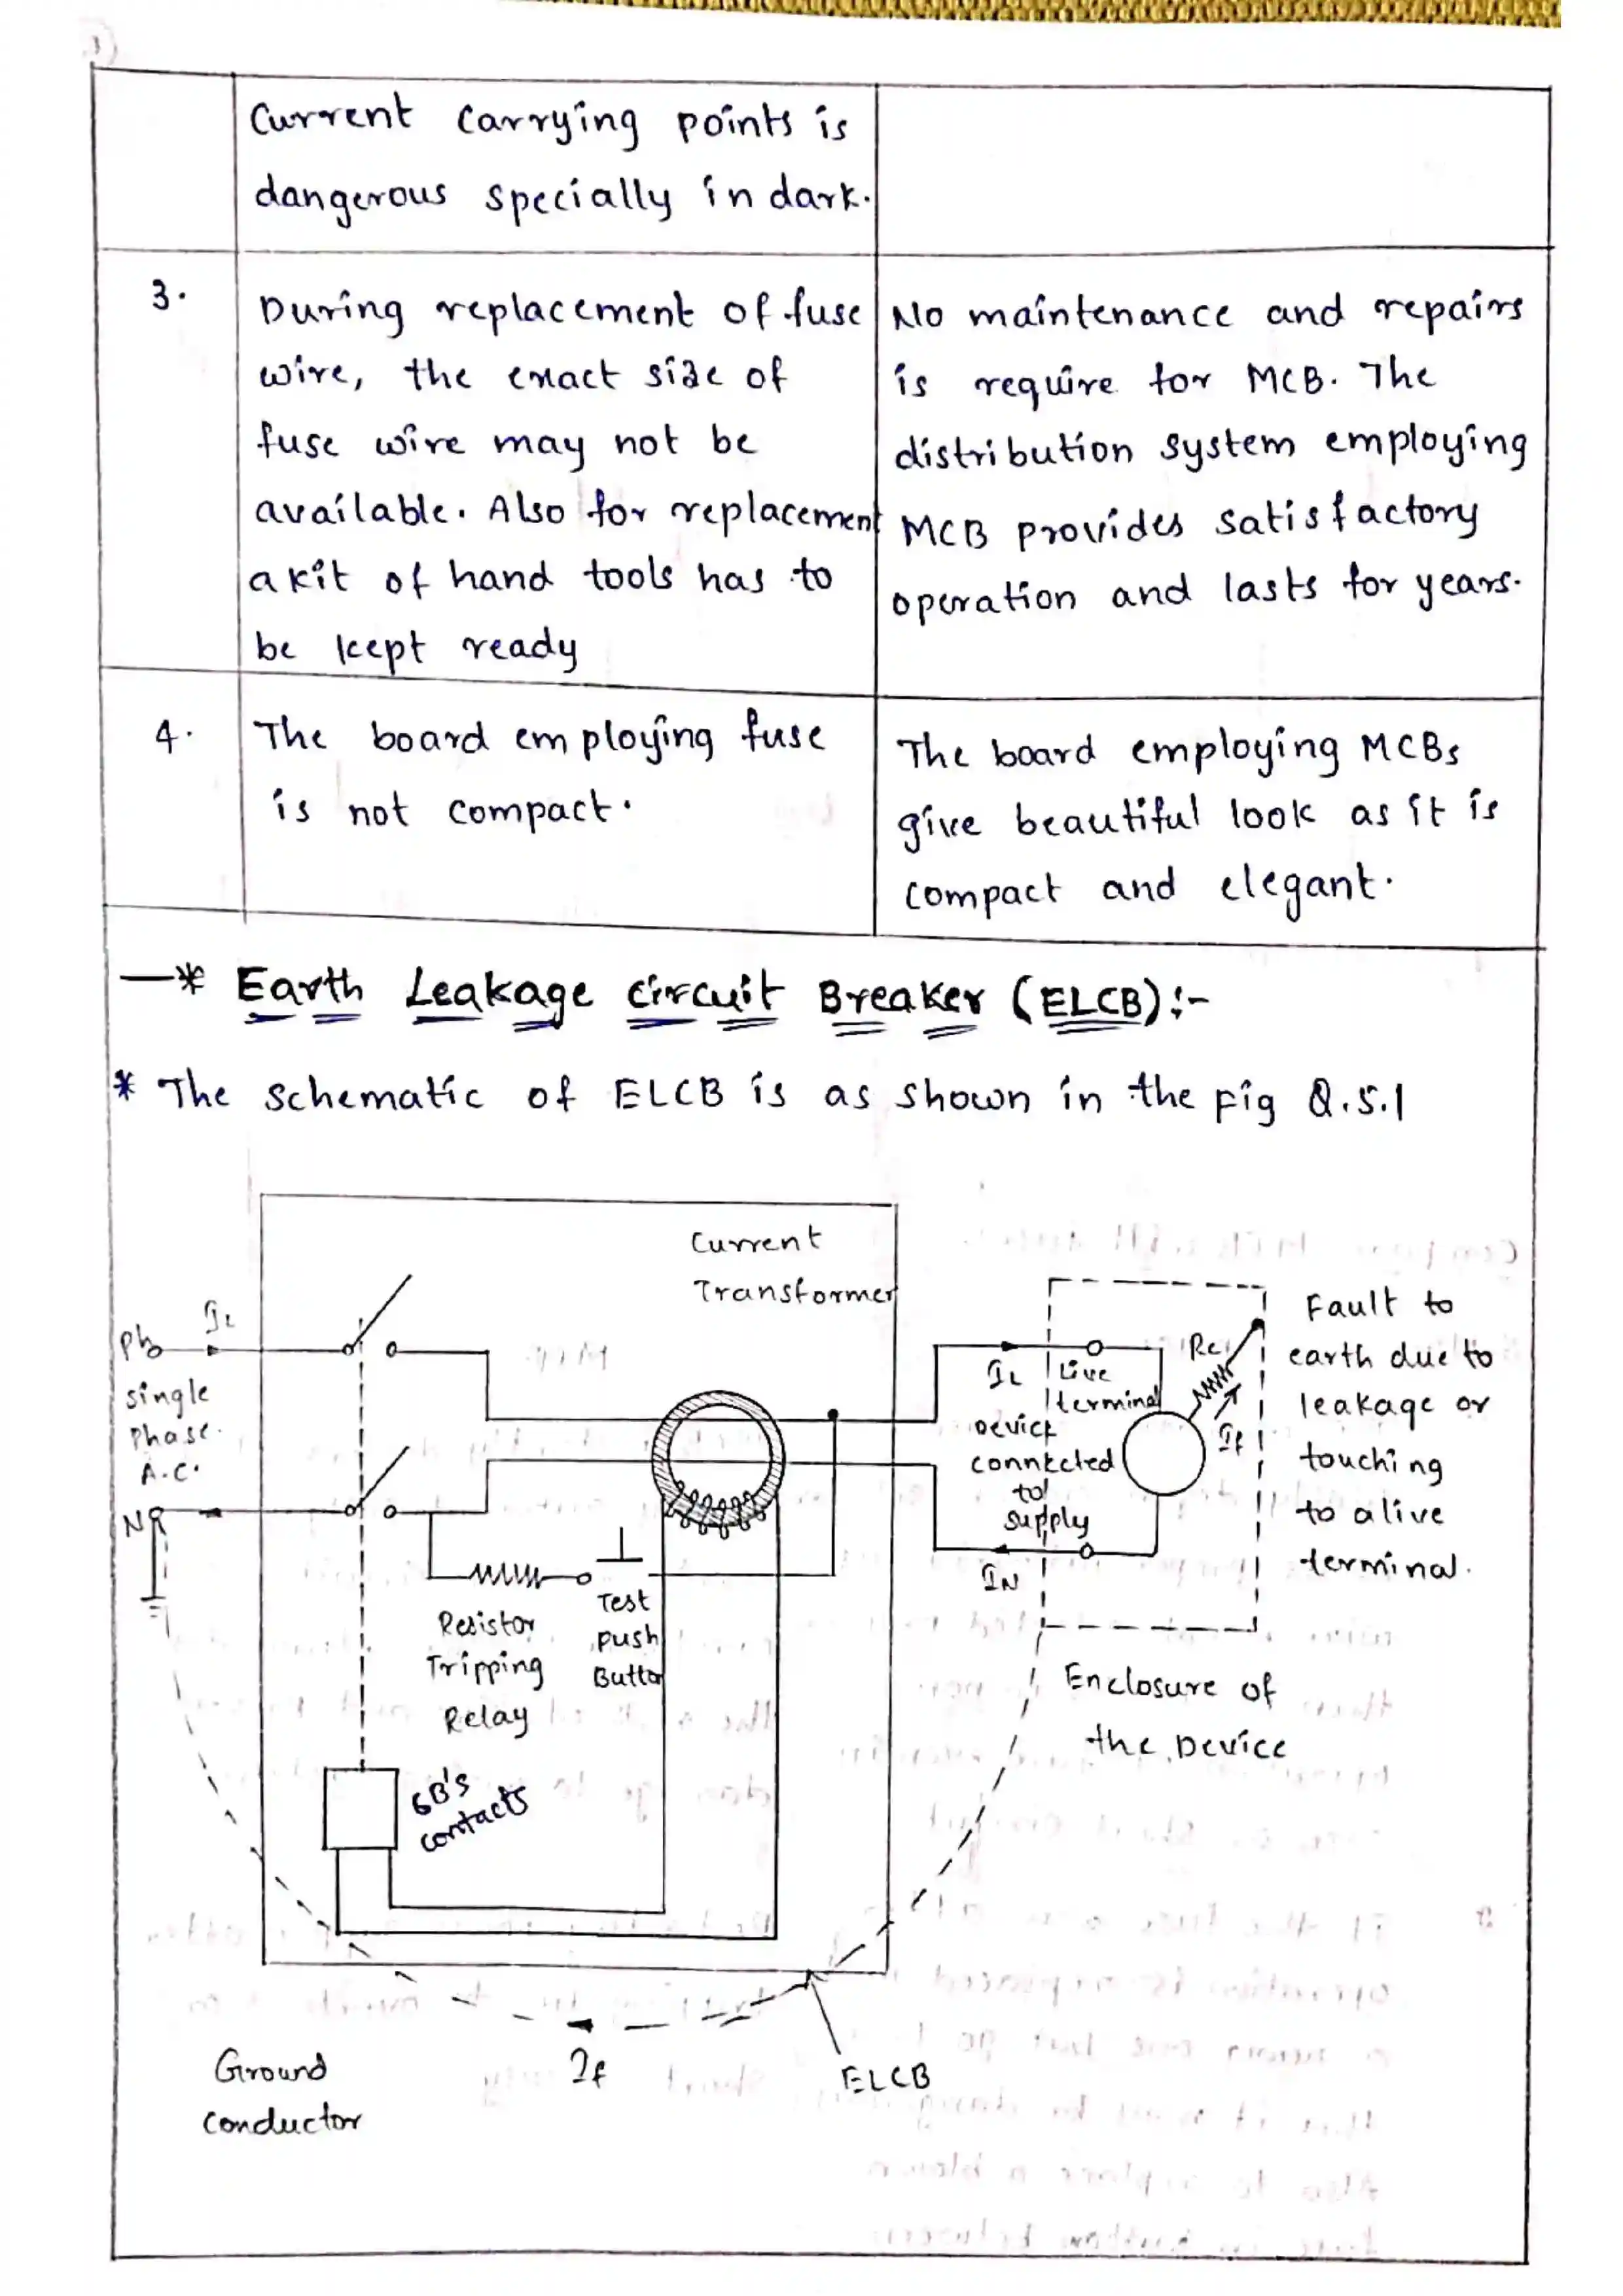 Current carrying points is
dangerous specially in dark.
3.
During replacement of fuse
wire, the exact size of
fuse wire may not be
available. Also for replacement
a kit of hand tools has to
be kept ready
No maintenance and repairs
is require for MCB. The
distribution system employing
MCB provides satisfactory
operation and lasts for years.
4.
The board employing fuse
is not compact.
The board employing MCBs
give beautiful look as it is
compact and elegant.
—* Earth Leakage Circuit Breaker (ELCB):-
* The schematic of ELCB is as shown in the fig Q.5.1
Current
Transformer
Ph
IL
Single
Phase.
A.C.
N
Resistor
Tripping
Relay
Test
push
Button
contacts
IL
Live
terminal
Device
connected
to
supply
IN
If
Fault to
earth due to
leakage or
touching
to a live
terminal.
Enclosure of
the Device
Ground
conductor
If
ELCB